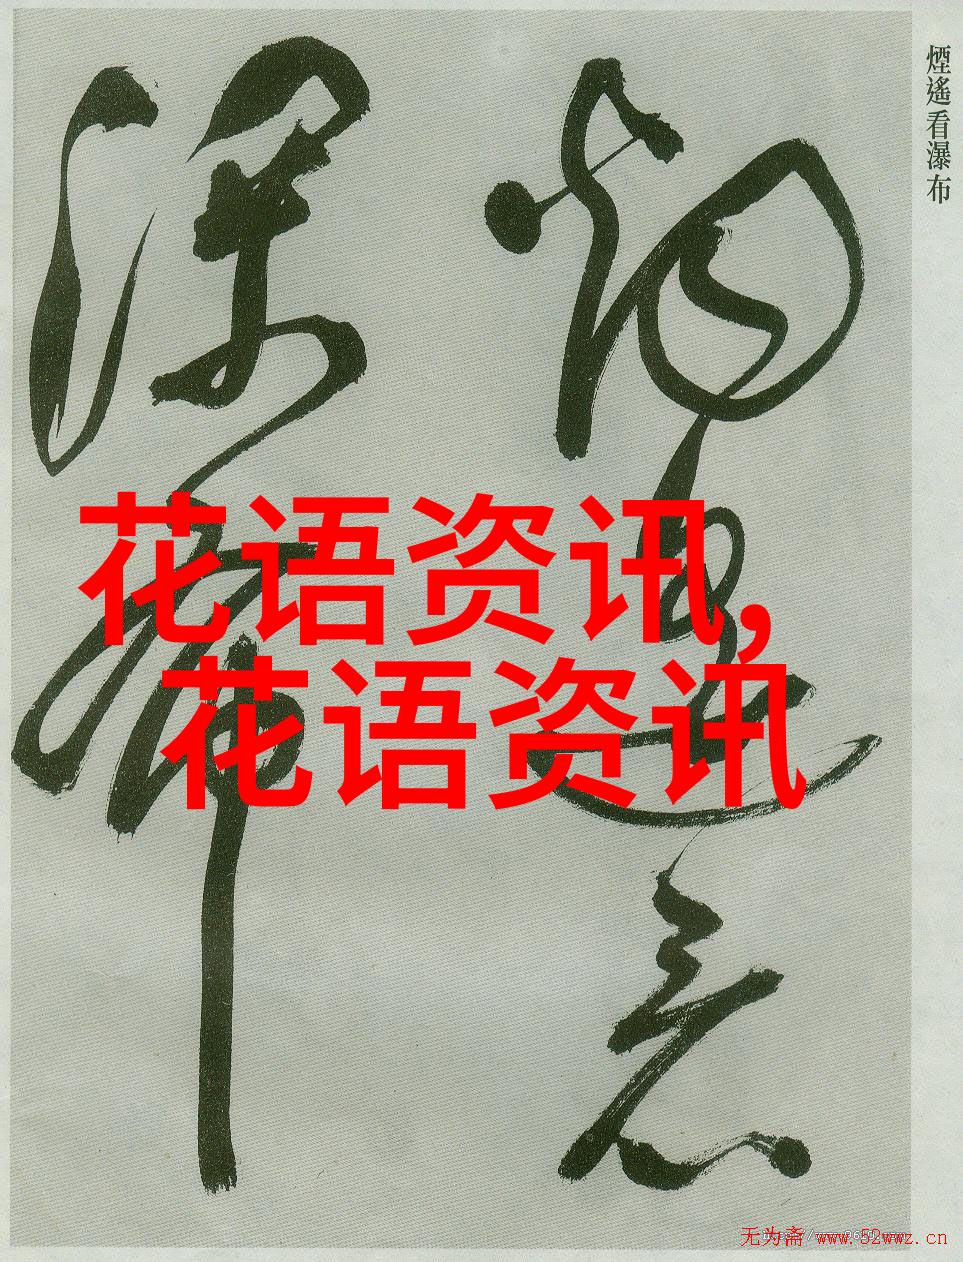 煙遙看瀑布
花语资讯,
花语资讯
无为斋 www.52wwz.cn